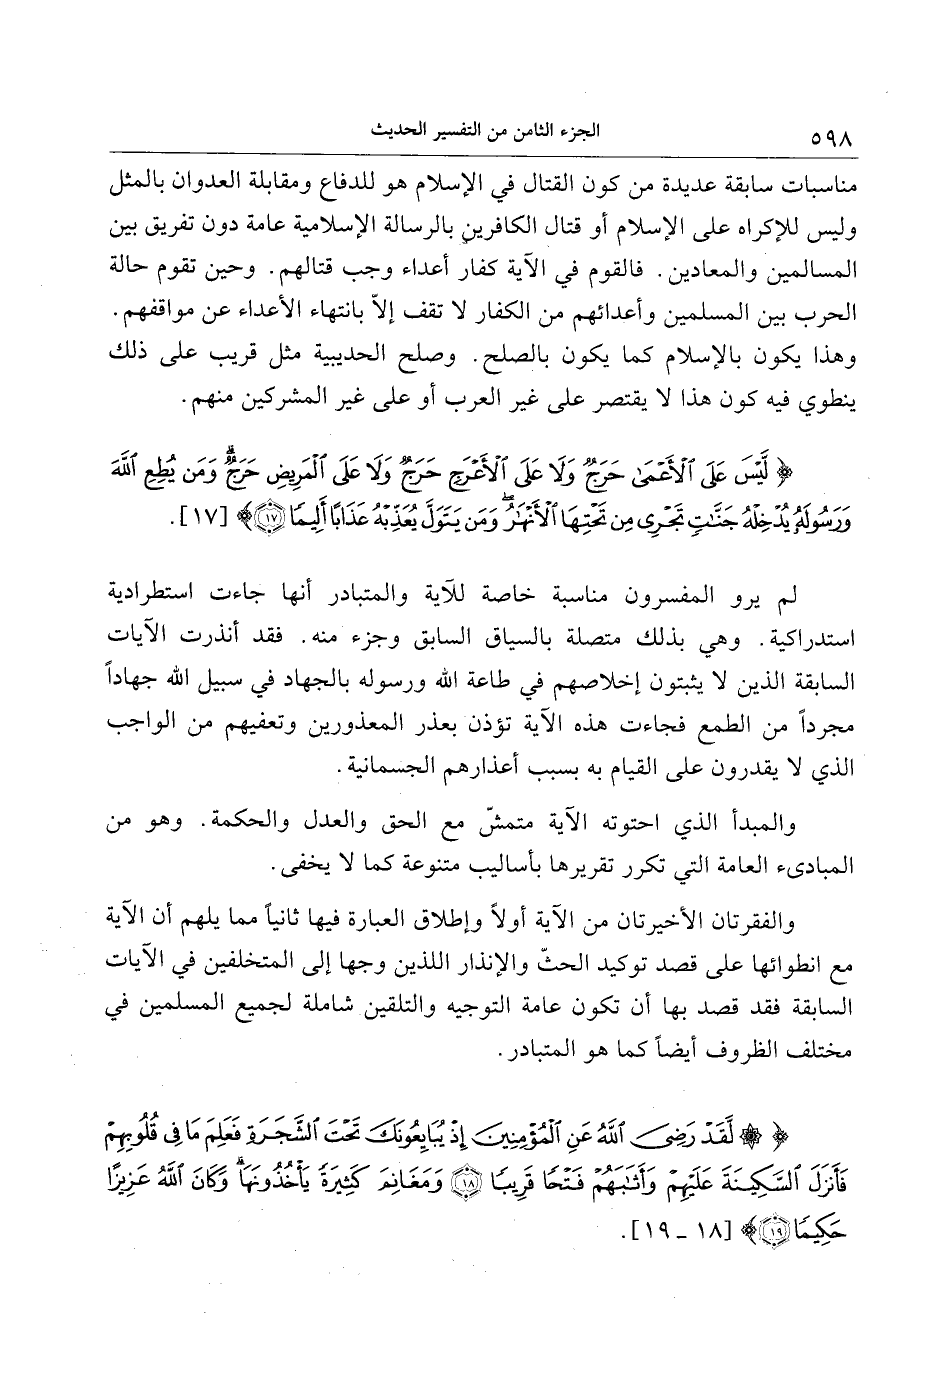 ٥٩٨ الجزء الثامن من التفسير الحديث
مناسبات سابقة عديدة من كون القتال في الإسلام هو للدفاع ومقابلة العدوان بالمثل
وليس للإكراه على الإسلام أو قتال الكافرين بالرسالة الإسلامية عامة دون تفريق بين
المسالمين والمعادين. فالقوم في الآية كفار أعداء وجب قتالهم. وحين تقوم حالة
الحرب بين المسلمين وأعدائهم من الكفار لا تقف إلاّ بانتهاء الأعداء عن مواقفهم.
وهذا يكون بالإسلام كما يكون بالصلح. وصلح الحديبية مثل قريب على ذلك
ينطوي فيه كون هذا لا يقتصر على غير العرب أو على غير المشركين منهم.
﴿ لَّيْسَ عَلَى ٱلْأَعْمَىٰ حَرَجٌ وَلَا عَلَى ٱلْأَعْرَجِ حَرَجٌ وَلَا عَلَى ٱلْمَرِيضِ حَرَجٌ ۗ وَمَن يُطِعِ ٱللَّهَ
وَرَسُولَهُۥ يُدْخِلْهُ جَنَّٰتٍ تَجْرِى مِن تَحْتِهَا ٱلْأَنْهَٰرُ ۖ وَمَن يَتَوَلَّ يُعَذِّبْهُ عَذَابًا أَلِيمًا ١٧ ﴾ [١٧].
لم يرو المفسرون مناسبة خاصة للآية والمتبادر أنها جاءت استطرادية
استدراكية. وهي بذلك متصلة بالسياق السابق وجزء منه. فقد أنذرت الآيات
السابقة الذين لا يثبتون إخلاصهم في طاعة الله ورسوله بالجهاد في سبيل الله جهاداً
مجرداً من الطمع فجاءت هذه الآية تؤذن بعذر المعذورين وتعفيهم من الواجب
الذي لا يقدرون على القيام به بسبب أعذارهم الجسمانية.
والمبدأ الذي احتوته الآية متمشّ مع الحق والعدل والحكمة. وهو من
المبادىء العامة التي تكرر تقريرها بأساليب متنوعة كما لا يخفى.
والفقرتان الأخيرتان من الآية أولاً وإطلاق العبارة فيها ثانياً مما يلهم أن الآية
مع انطوائها على قصد توكيد الحثّ والإنذار اللذين وجها إلى المتخلفين في الآيات
السابقة فقد قصد بها أن تكون عامة التوجيه والتلقين شاملة لجميع المسلمين في
مختلف الظروف أيضاً كما هو المتبادر.
﴿ ۞ لَّقَدْ رَضِىَ ٱللَّهُ عَنِ ٱلْمُؤْمِنِينَ إِذْ يُبَايِعُونَكَ تَحْتَ ٱلشَّجَرَةِ فَعَلِمَ مَا فِى قُلُوبِهِمْ
فَأَنزَلَ ٱلسَّكِينَةَ عَلَيْهِمْ وَأَثَٰبَهُمْ فَتْحًا قَرِيبًا ١٨ وَمَغَانِمَ كَثِيرَةً يَأْخُذُونَهَا ۗ وَكَانَ ٱللَّهُ عَزِيزًا
حَكِيمًا ١٩ ﴾ [١٨ - ١٩].